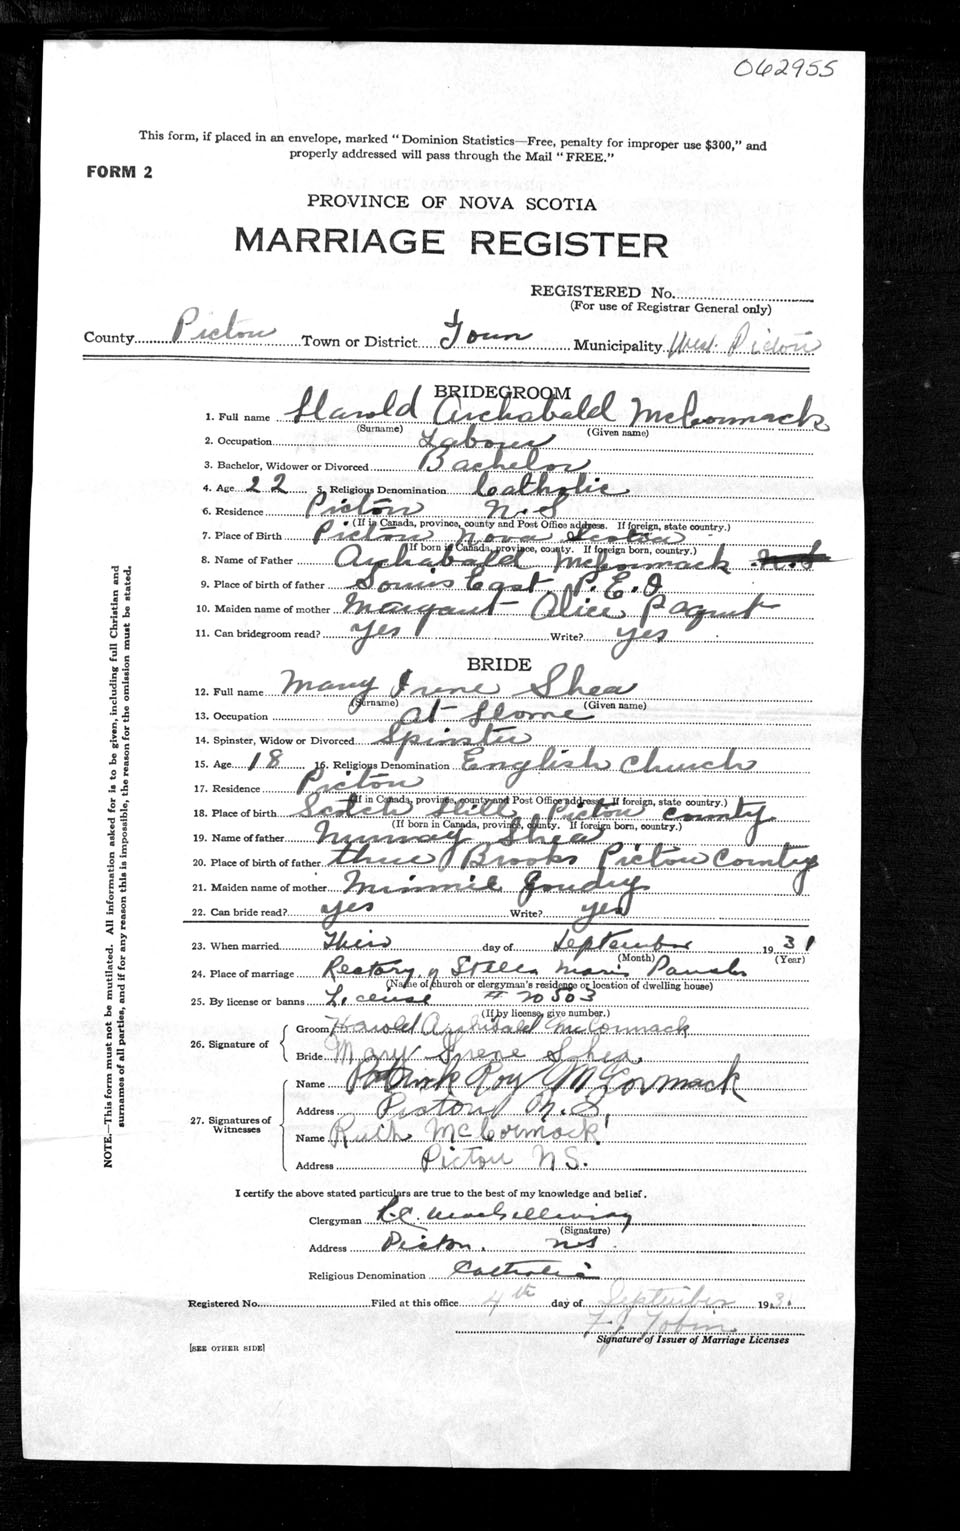 062955
This form, if placed in an envelope, marked "Dominion Statistics—Free, penalty for improper use $300," and
properly addressed will pass through the Mail "FREE."
FORM 2
PROVINCE OF NOVA SCOTIA
MARRIAGE REGISTER
REGISTERED No.
(For use of Registrar General only)
County Pictou Town or District Town Municipality West Pictou
BRIDEGROOM
1. Full name Harold Archabald McCormack
(Surname) (Given name)
2. Occupation Labour
3. Bachelor, Widower or Divorced Bachelor
4. Age 22 5. Religious Denomination Catholic
6. Residence Pictou N.S
(If in Canada, province, county and Post Office address. If foreign, state country.)
7. Place of Birth Pictou Nova Scotia
(If born in Canada, province, county. If foreign born, country.)
8. Name of Father Archabald McCormack N.S
9. Place of birth of father Souris East P.E.I
10. Maiden name of mother Margaut Alice Paquet
11. Can bridegroom read? yes Write? yes
BRIDE
12. Full name Mary Irene Shea
(Surname) (Given name)
13. Occupation At Home
14. Spinster, Widow or Divorced Spinster
15. Age 18 16. Religious Denomination English Church
17. Residence Pictou
(If in Canada, province, county and Post Office address. If foreign, state country.)
18. Place of birth Scotch Hill Pictou County
(If born in Canada, province, county. If foreign born, country.)
19. Name of father Murray Shea
20. Place of birth of father three Brooks Pictou County
21. Maiden name of mother Minnie Goudey
22. Can bride read? yes Write? yes
23. When married Third day of September 1931
(Month) (Year)
24. Place of marriage Rectory of Stella Maris Parish
(Name of church or clergyman's residence or location of dwelling house)
25. By license or banns License # 20503
(If by license, give number.)
26. Signature of
Groom Harold Archibald McCormack
Bride Mary Irene Shea.
27. Signatures of Witnesses
Name Patrick Roy McCormack
Address Pictou N.S.
Name Ruth McCormack
Address Pictou N.S.
I certify the above stated particulars are true to the best of my knowledge and belief.
Clergyman MacGillivray
(Signature)
Address Pictou. N.S.
Religious Denomination Catholic
Registered No. Filed at this office 4th day of September 1931.
F. J. Tobin
Signature of Issuer of Marriage Licenses
[SEE OTHER SIDE]
NOTE.—This form must not be mutilated. All information asked for is to be given, including full Christian and
surnames of all parties, and if for any reason this is impossible, the reason for the omission must be stated.